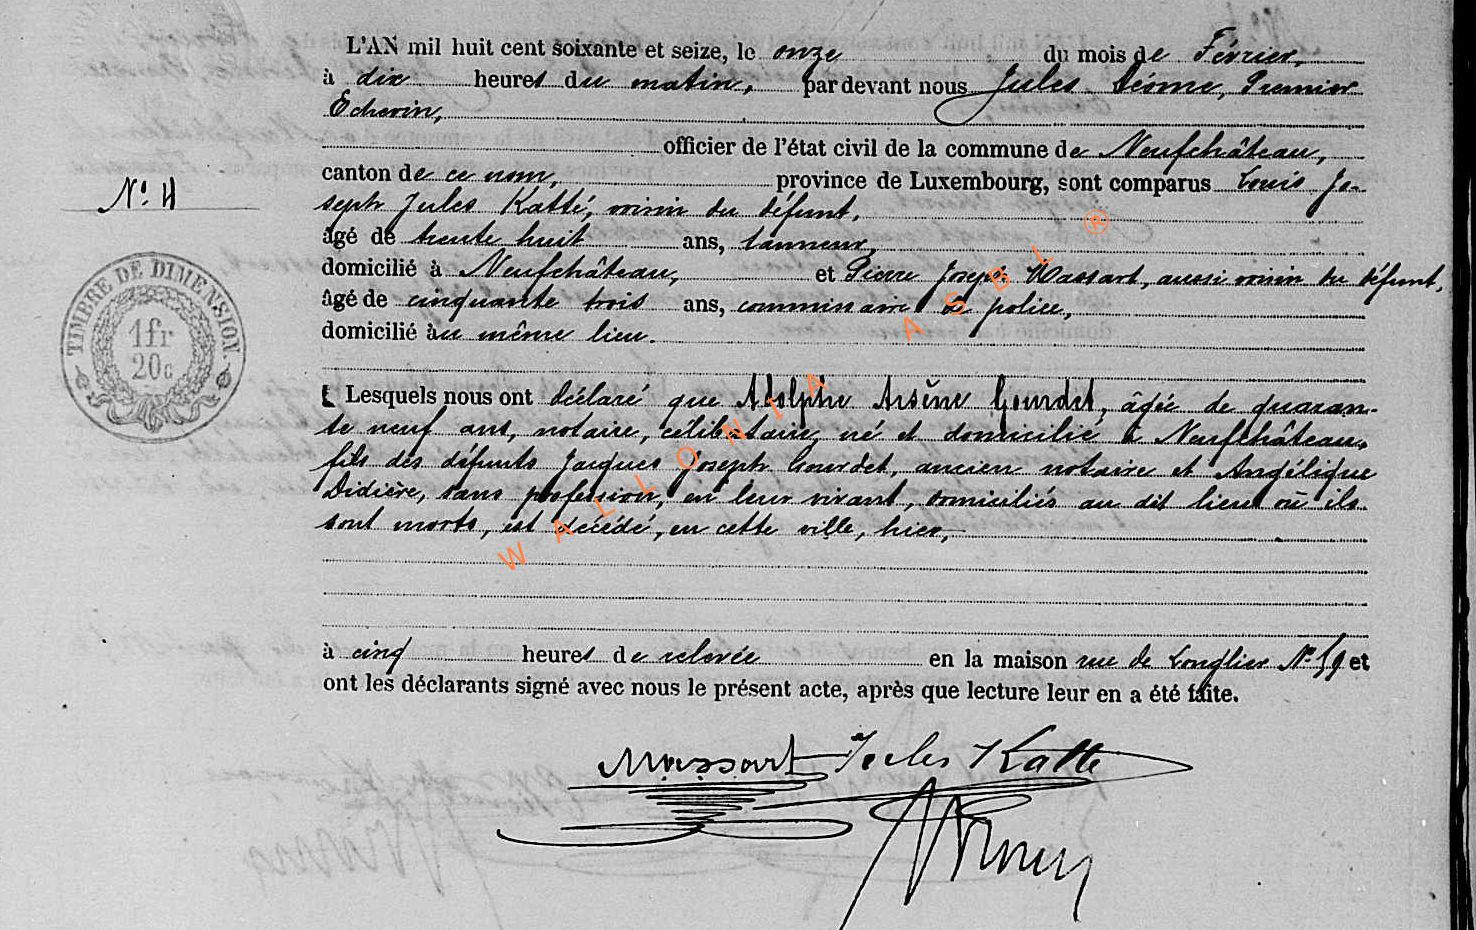 L'AN mil huit cent soixante et seize, le onze du mois de Février,
à dix heures du matin, par devant nous Jules Désme, Premier
Echevin,
officier de l'état civil de la commune de Neufchâteau,
canton de ce nom, province de Luxembourg, sont comparus Louis Jo-
N° 4
seph Jules Katté, voisin du défunt,
âgé de trente huit ans, tanneur,
domicilié à Neufchâteau, et Pierre Joseph Massart, aussi voisin du défunt,
âgé de cinquante trois ans, commissaire de police,
domicilié au même lieu.
TIMBRE DE DIMENSION.
1fr
20c
Lesquels nous ont déclaré que Adolphe Arsène Gourdet, âgée de quaran-
te neuf ans, notaire, célibataire, né et domicilié à Neufchâteau,
fils des défunts Jacques Joseph Gourdet, ancien notaire et Angélique
Didière, sans profession, en leur vivant, domiciliés au dit lieu où ils
sont morts, est décédé, en cette ville, hier,
à cinq heures de relevée en la maison rue de Longlier N° 59 et
ont les déclarants signé avec nous le présent acte, après que lecture leur en a été faite.
Massart Jules Katté
WALLONIA ASBL ®